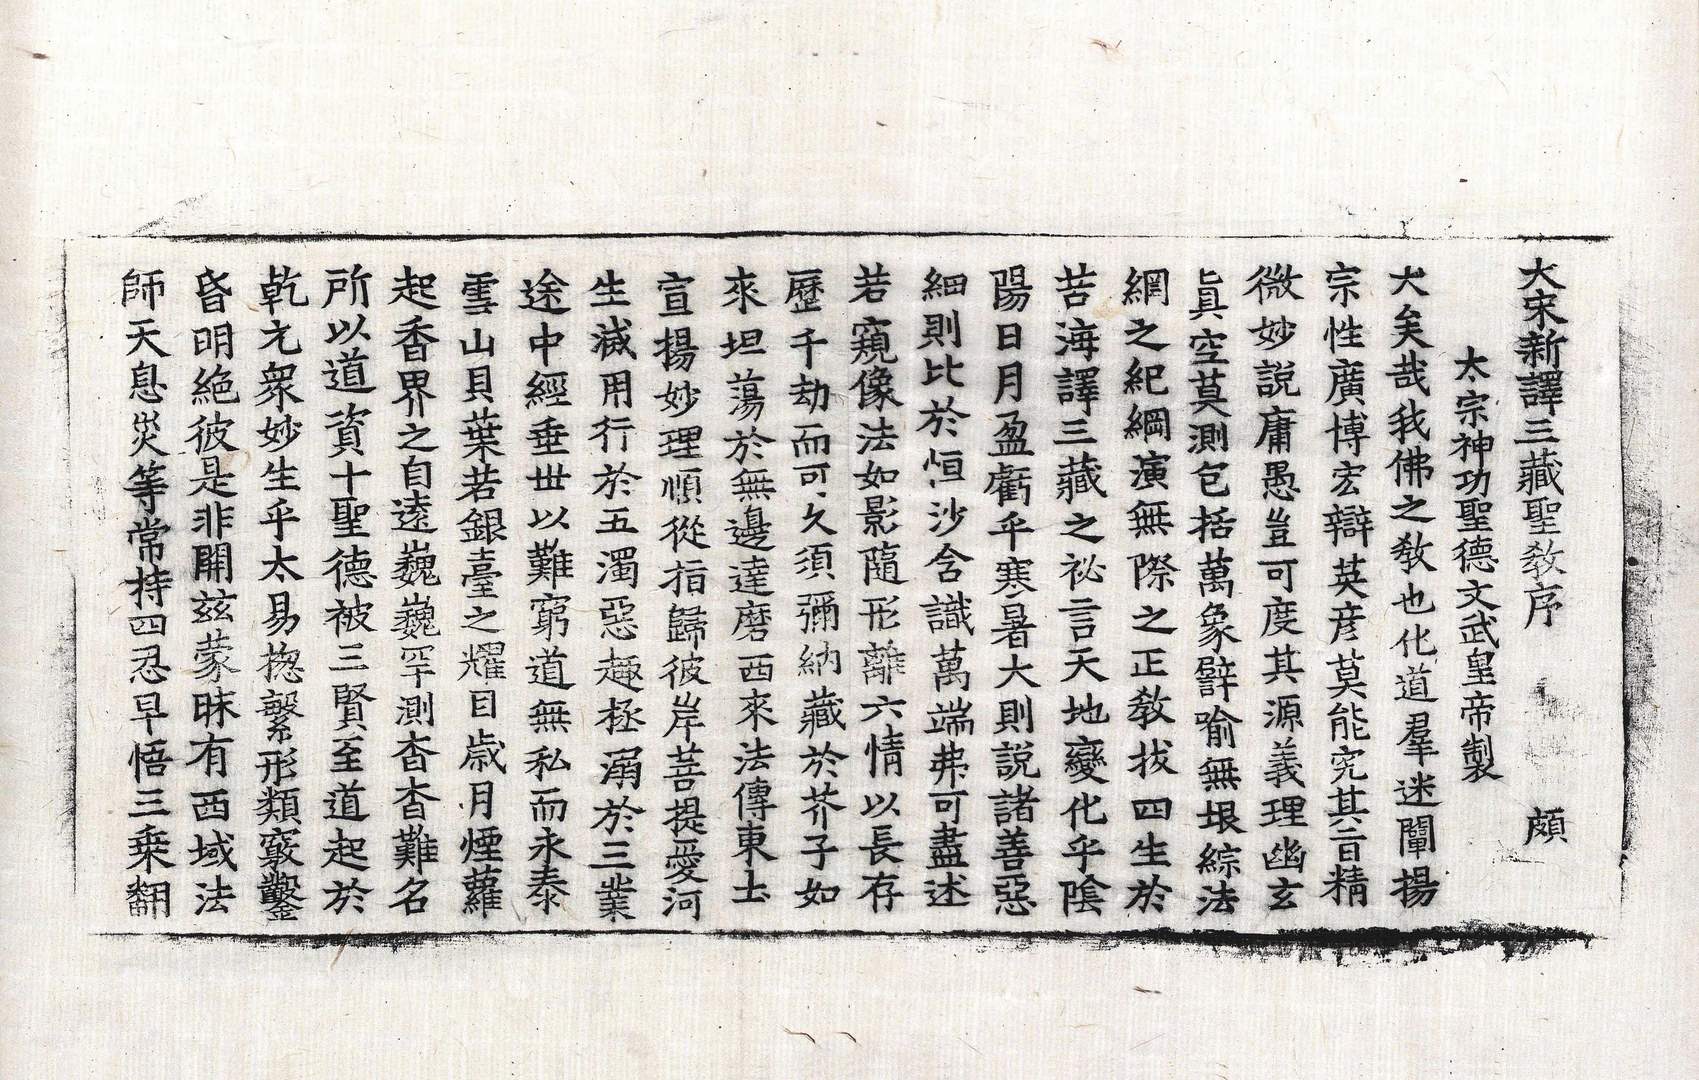 大宋新譯三藏聖敎序 頗
太宗神功聖德文武皇帝製
大矣哉我佛之敎也化道羣迷闡揚
宗性廣博宏辯英彦莫能究其旨精
微妙說庸愚豈可度其源義理幽玄
眞空莫測包括萬象譬喻無垠綜法
網之紀綱演無際之正敎拔四生於
苦海譯三藏之祕言天地變化乎陰
陽日月盈虧乎寒暑大則說諸善惡
細則比於恒沙含識萬端弗可盡述
若窺像法如影隨形離六情以長存
歷千劫而可久須彌納藏於芥子如
來坦蕩於無邊達磨西來法傳東土
宣揚妙理順從指歸彼岸菩提愛河
生滅用行於五濁惡趣拯溺於三業
途中經垂世以難窮道無私而永泰
雪山貝葉若銀臺之耀目歲月煙蘿
起香界之自遠巍巍罕測杳杳難名
所以道資十聖德被三賢至道起於
乾元衆妙生乎太易揔繄形類竅鑿
昏明絕彼是非開玆蒙昧有西域法
師天息災等常持四忍早悟三乘翻